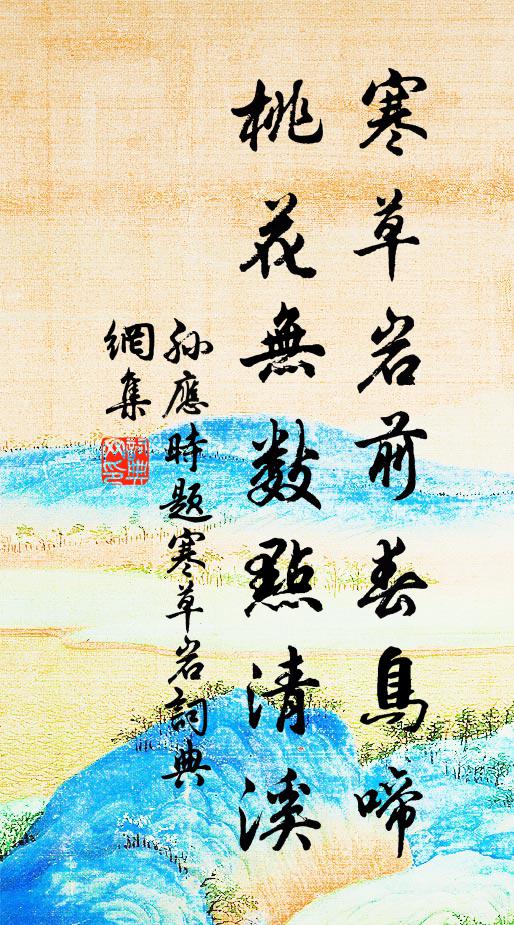 寒草岩前春鳥啼
桃花無數點清溪
孫應時題寒草岩詞典
網集